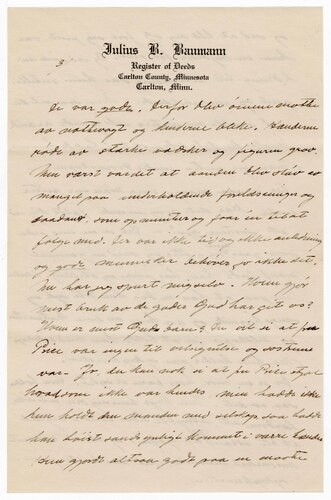 Julius B. Baumann
Register of Deeds
Carlton County, Minnesota
Carlton, Minn.
3
De var gode. Derfor blev øinene matte
av nattevagt og hænderne bleke. Hænderne
røde av sterke vædsker og figuren grov.
Men værst var det at aanden blev sløv av
mangel paa underholdende forelæsninger og
saadant som opmuntrer og faar en til at
følge med. Der var ikke tid og ikke anledning
og gode mennesker behøver jo ikke det.
Nu har jeg spurt mig selv. Hvem gjør
mest bruk av de gaver Gud har git os?
Hvem er mest Guds barn? Du vil si at fru
Price var ingen til velsignelse og søstrene
var. Jo, du kan nok si at fru Price stjal
hvad som ikke var hendes men hadde ikke
hun holdt den manden med selskap saa hadde
han høist sandsynlig kommet i værre hænder.
Hun gjorde altsaa godt paa en maate